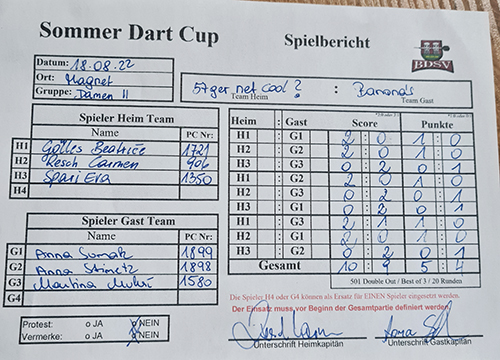 Sommer Dart Cup
Spielbericht
BDSV
Datum: 18.08.22
Ort: Magnet
Gruppe: Damen II
57ger net cool? : Bananas
Team Heim Team Gast
Spieler Heim Team
Name PC Nr:
H1 Götles Beatrice 1721
H2 Resch Carmen 906
H3 Spari Eva 1350
H4
Spieler Gast Team
Name PC Nr:
G1 Anna 1899
G2 Anna 1898
G3 Martina 1580
G4
Protest: o JA o NEIN
Vermerke: o JA NEIN
Heim : Gast Score Punkte
H1 : G1 2 : 0 1 : 0
H2 : G2 2 : 0 1 : 0
H3 : G3 0 : 2 0 : 1
H1 : G2 2 : 0 1 : 0
H2 : G3 0 : 2 0 : 1
H3 : G1 0 : 2 0 : 1
H1 : G3 2 : 1 1 : 0
H2 : G1 2 : 0 1 : 0
H3 : G2 0 : 2 0 : 1
Gesamt 10 : 9 5 : 4
501 Double Out / Best of 3 / 20 Runden
Die Spieler H4 oder G4 können als Ersatz für EINEN Spieler eingesetzt werden.
Der Ersatz muss vor Beginn der Gesamtpartie definiert werden.
Unterschrift Heimkapitän Unterschrift Gastkapitän